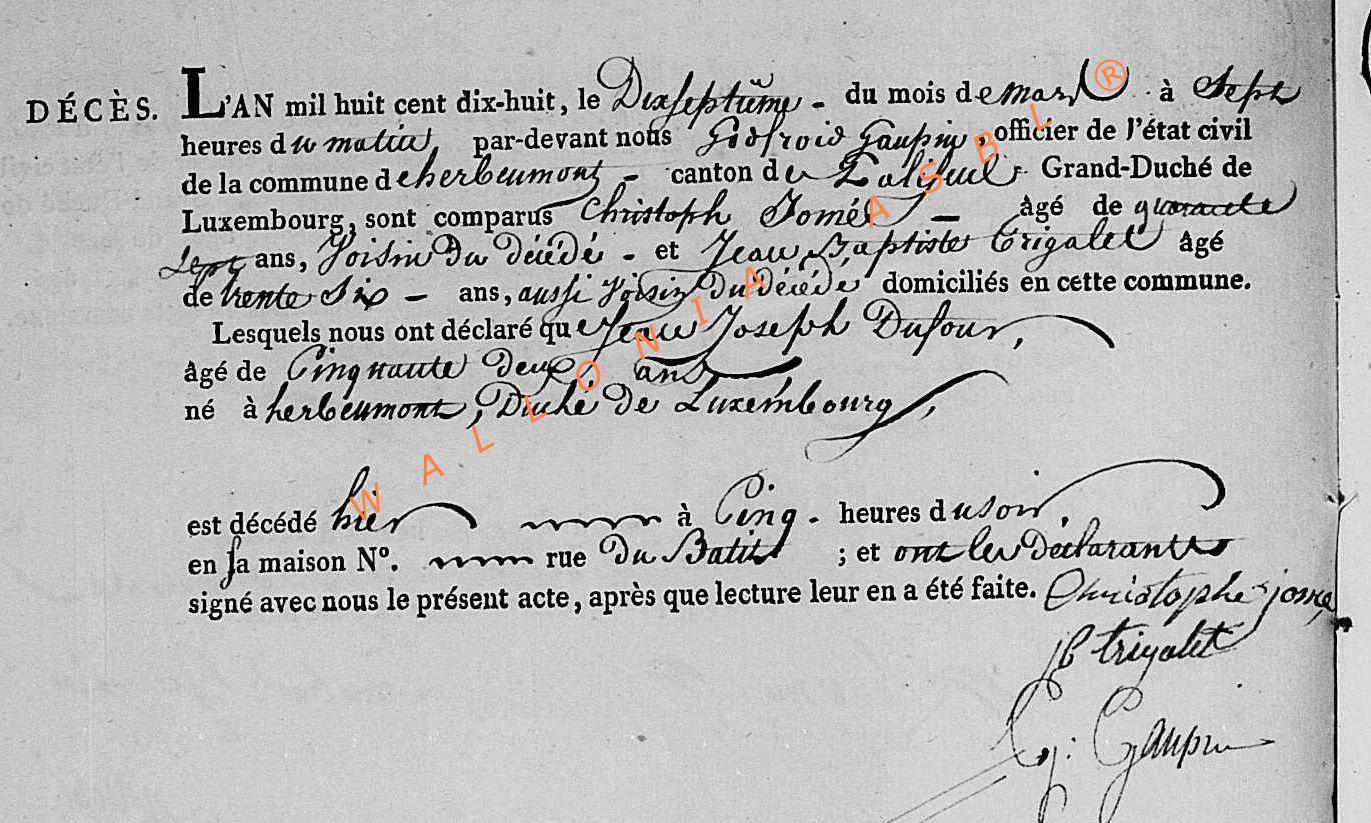 DÉCÈS. L'AN mil huit cent dix-huit, le Dixseptième - du mois de mars à Sept
heures du matin, par-devant nous Godfroid Gaupin, officier de l'état civil
de la commune d'herbeumont - canton de Paliseul - Grand-Duché de
Luxembourg, sont comparus Christoph Jomé - âgé de quarante
Sept ans, Voisin du décédé - et Jean Baptiste Trigalet âgé
de trente Six - ans, aussi Voisin Du décédé domiciliés en cette commune.
Lesquels nous ont déclaré que Jean Joseph Dufour,
âgé de Cinquante deux, ans
né à herbeumont, Duché de Luxembourg,
est décédé hier à Cinq - heures du soir,
en sa maison N°. rue Du Batit ; et ont les Déclarants
signé avec nous le présent acte, après que lecture leur en a été faite. Christophe jome
jb trigalet
G: Gaupin
WALLONIA ASBL ®